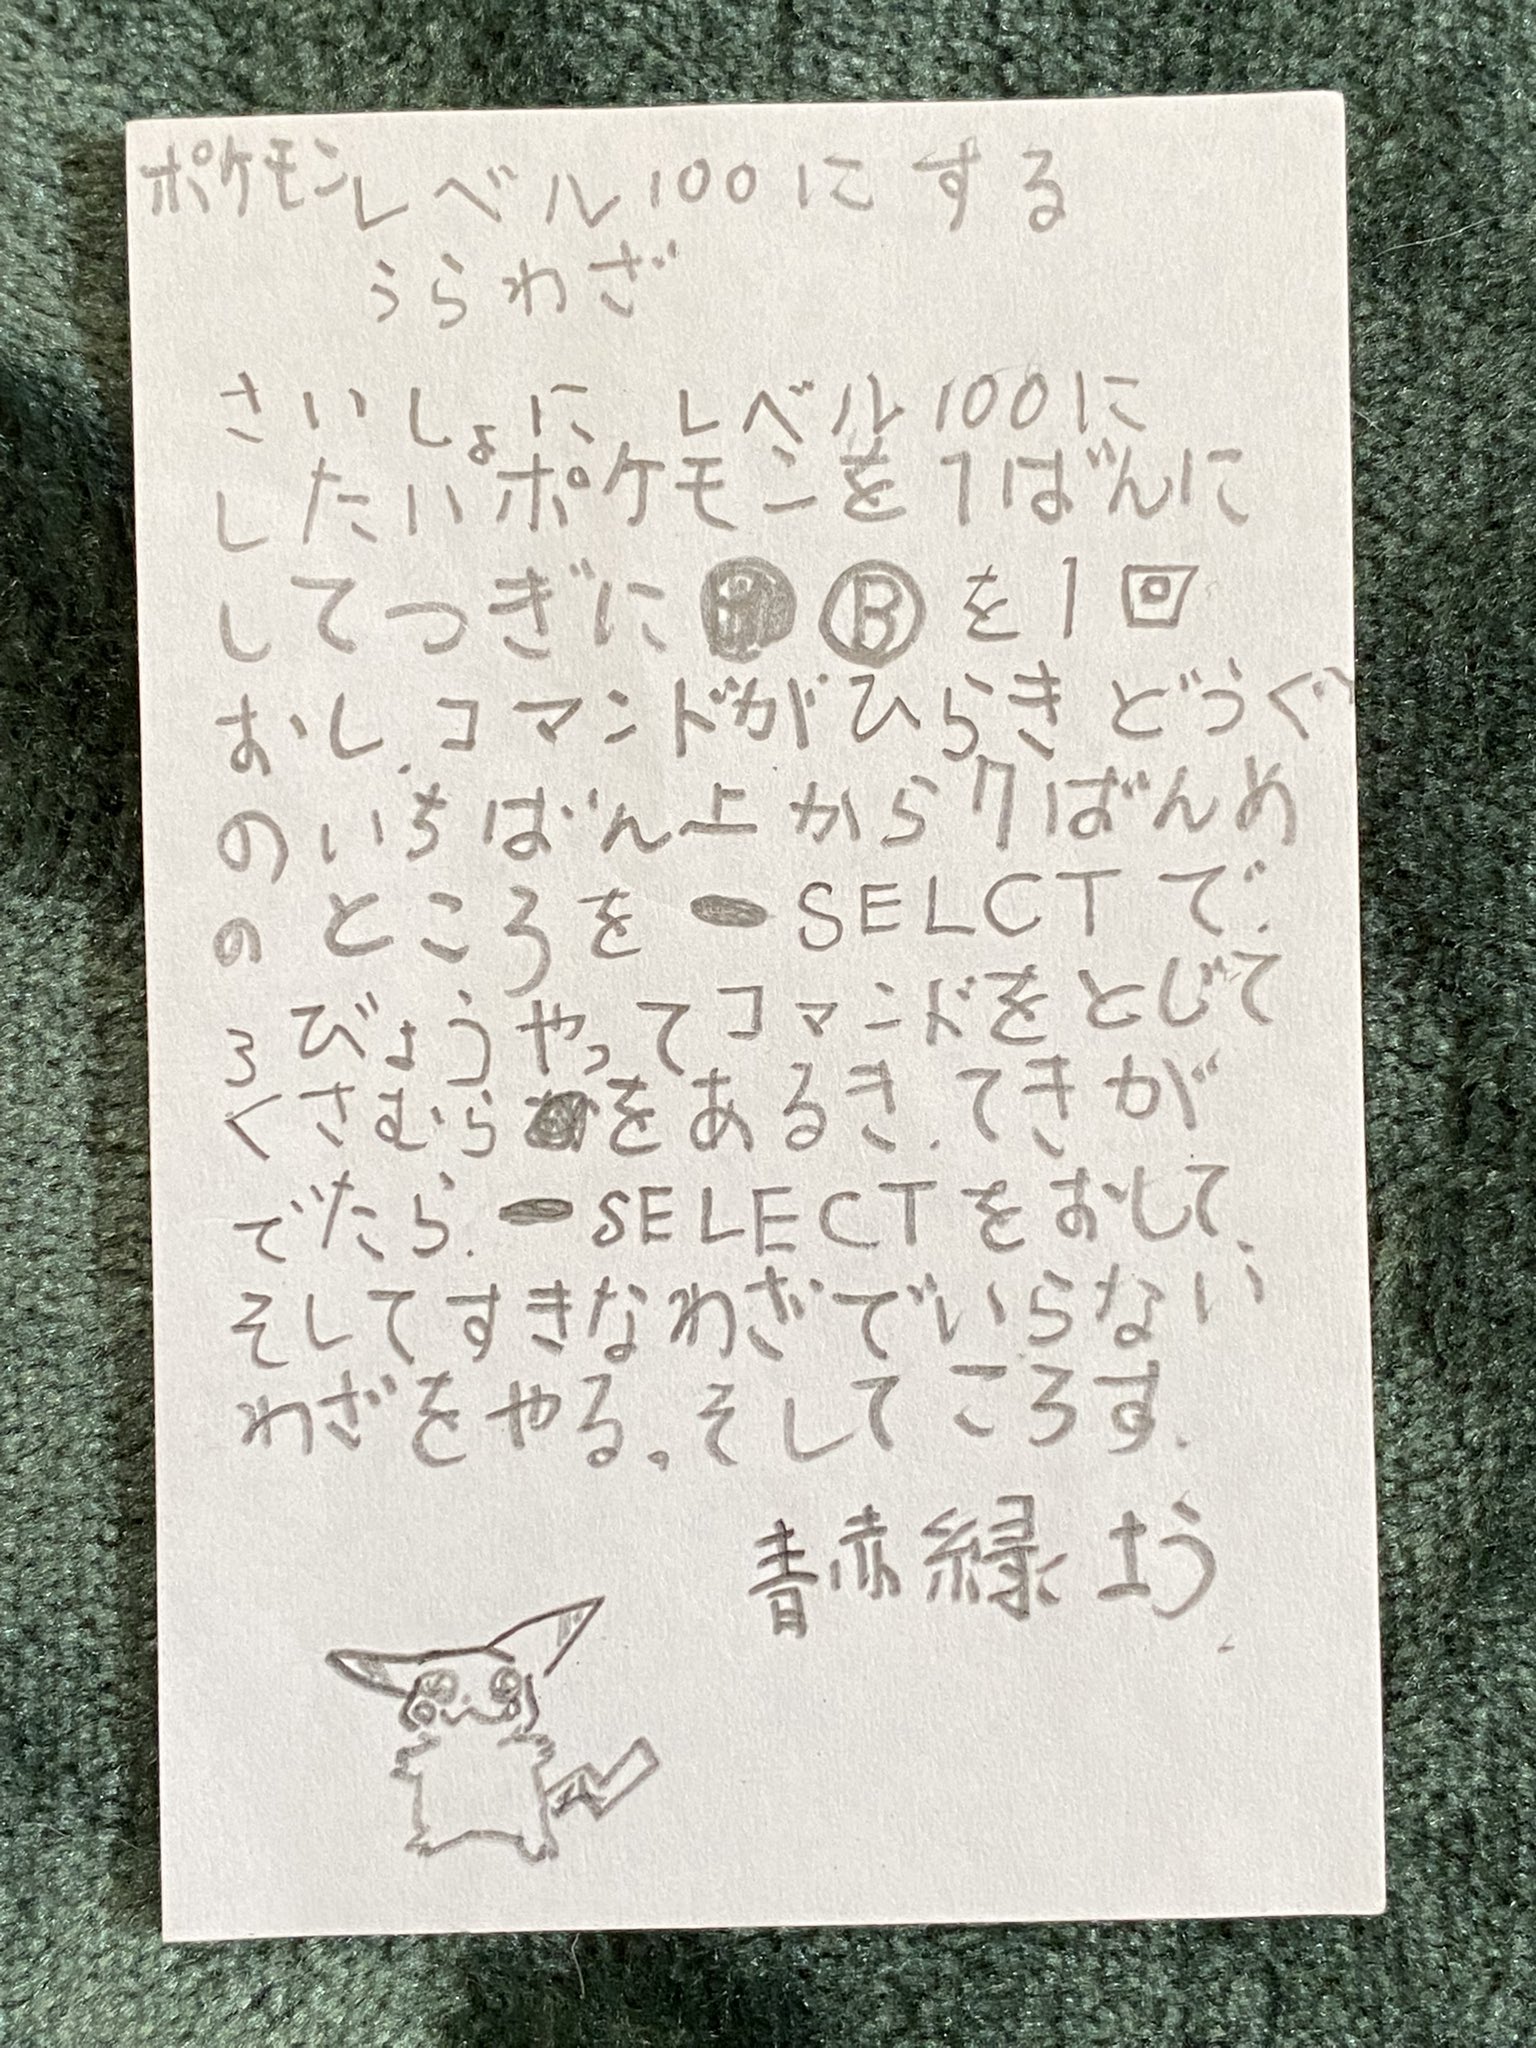 ポケモンレベル100にする
うらわざ
さいしょに、レベル100に
したいポケモンを1ばんに
してつぎに Ⓑを1回
おし、コマンドがひらきどうぐ
のいちばん上から7ばんめ
のところを SELCTで、
3びょうやってコマンドをとじて
くさむらをあるき、てきが
でたら、SELECTをおして、
そしてすきなわざでいらない
わざをやる。そしてころす。
青赤緑